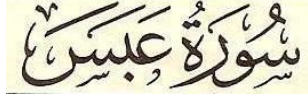 سُورَةُ عَبَسَ